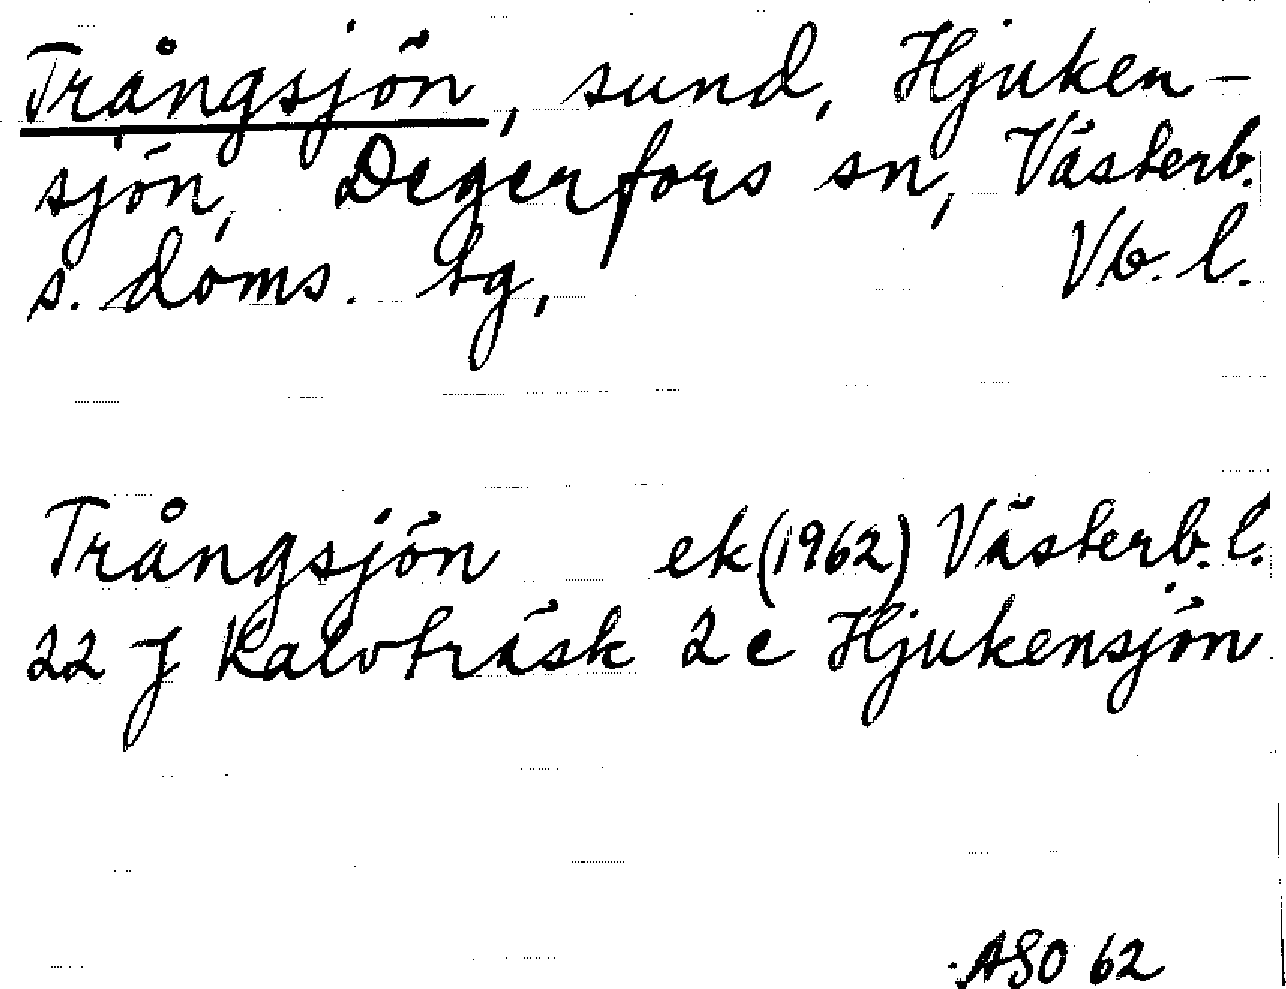 Trångsjön, sund, Hjuken-
sjön, Degerfors sn, Västerb.
s. doms. tg, Vb. l.
Trångsjön ek (1962) Västerb. l.
22 J Kalvträsk 2 c Hjukensjön
ASO 62